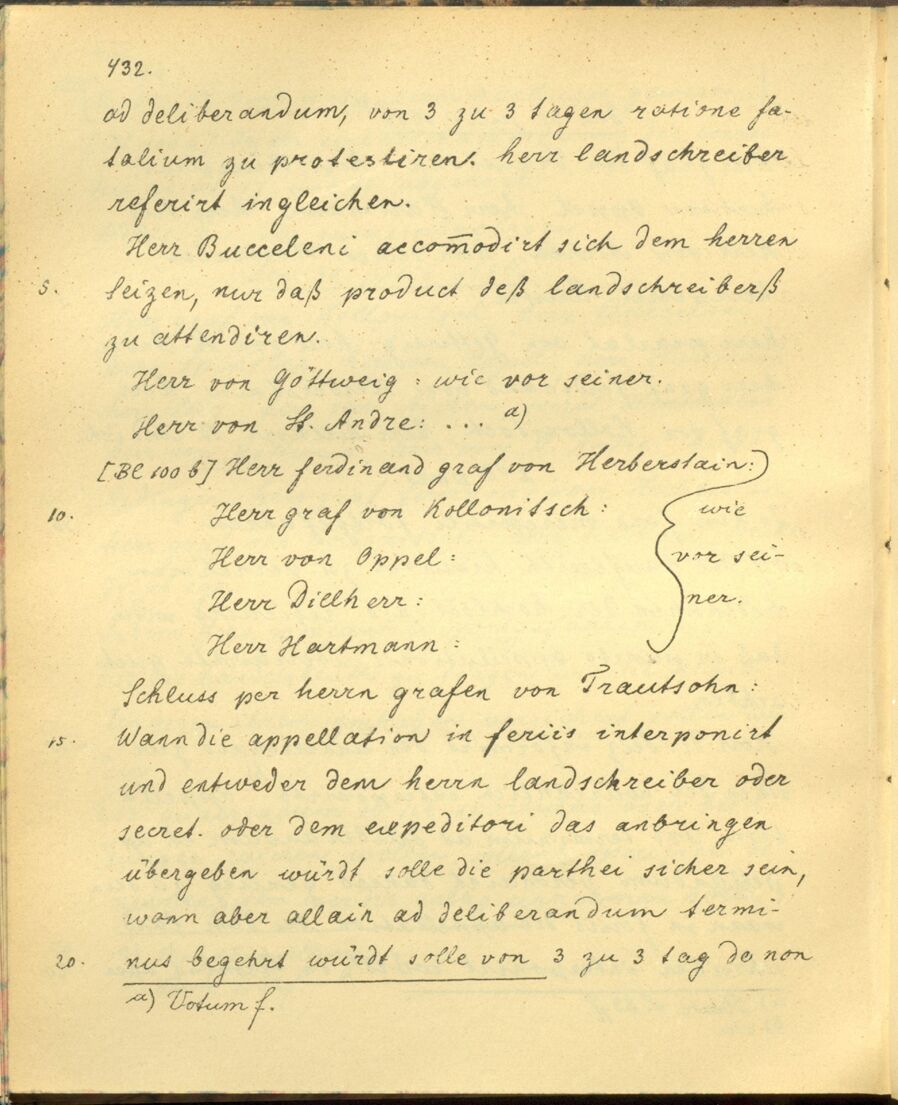 432.
ad deliberandum, von 3 zu 3 tagen ratione fa-
talium zu protestiren. herr landschreiber
referirt ingleichen.
Herr Bucceleni accom̄odirt sich dem herren
5. Seizen, nur daß product deß landschreiberß
zu attendiren.
Herr von Göttweig: wie vor seiner.
Herr von St. Andre: ... a)
[Bl 100 b] Herr ferdinand graf von Herberstain:
10. Herr graf von Kollonitsch: wie
Herr von Oppel: vor sei-
Herr Dillherr: ner.
Herr Hartmann:
Schluss per herrn grafen von Trautsohn:
15. Wann die appellation in feriis interponirt
und entweder dem herrn landschreiber oder
secret. oder dem expeditori das anbringen
übergeben würdt solle die parthei sicher sein,
wann aber allain ad deliberandum termi-
20. nus begehrt würdt solle von 3 zu 3 tag de non
a) Votum f.